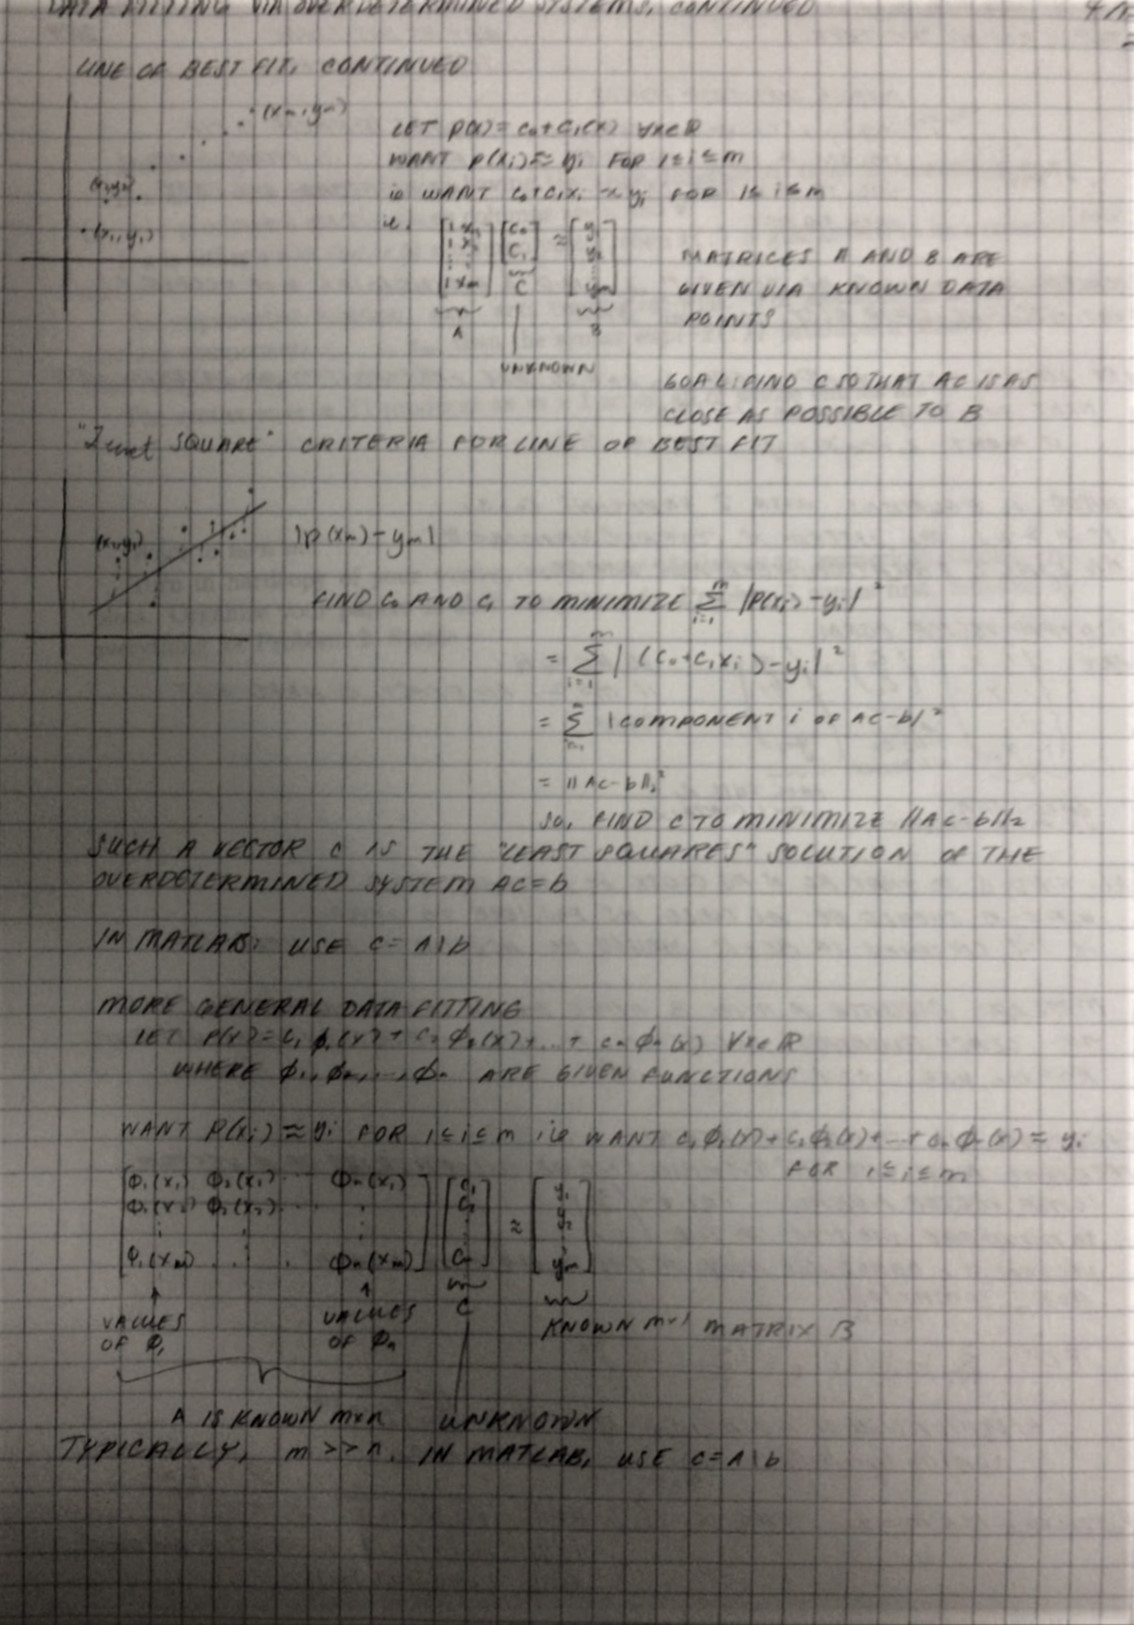 DATA FITTING VIA OVERDETERMINED SYSTEMS, CONTINUED
LINE OF BEST FIT, CONTINUED
(xm, ym)
LET p(x) = c0 + c1(x) ∀x∈ℝ
WANT p(xi) ≈ yi FOR 1≤i≤m
ie WANT c0+c1xi ≈ yi FOR 1≤i≤m
(x1, y1)
[1 x1 [c0 ≈ [y1
1 x2 c1] y2
1 xm] C ym]
A B
UNKNOWN
MATRICES A AND B ARE
GIVEN VIA KNOWN DATA
POINTS
GOAL: FIND C SO THAT AC IS AS
CLOSE AS POSSIBLE TO B
SQUARE" CRITERIA FOR LINE OF BEST FIT
|p(xm) - ym|
FIND c0 AND c1 TO MINIMIZE Σ i=1 m |p(xi) - yi|²
= Σ i=1 m |(c0+c1xi) - yi|²
= Σ |COMPONENT i OF AC-b|²
= ||Ac-b||₂²
SO, FIND C TO MINIMIZE ||Ac-b||₂
SUCH A VECTOR C IS THE "LEAST SQUARES" SOLUTION OF THE
OVERDETERMINED SYSTEM AC=b
IN MATLAB: USE C = A\b
MORE GENERAL DATA FITTING
LET P(x) = c1 ϕ1(x) + c2 ϕ2(x)+...+ cn ϕn(x) ∀x∈ℝ
WHERE ARE GIVEN FUNCTIONS
WANT P(xi) ≈ yi FOR 1≤i≤m ie WANT c1ϕ1(x)+c2ϕ2(x)+...+cnϕn(x) ≈ yi
FOR 1≤i≤m
[ϕ1(x1) ϕ2(x1) ... ϕn(x1)] [c1 [y1
ϕ1(x2) ϕ2(x2) ... c2 ≈ y2
ϕ1(xm) ... ϕn(xm)] cn] ym]
VALUES OF ϕ1
VALUES OF ϕn
C
KNOWN m×1 MATRIX B
A IS KNOWN m×n UNKNOWN
TYPICALLY, m >> n. IN MATLAB, USE C=A\b